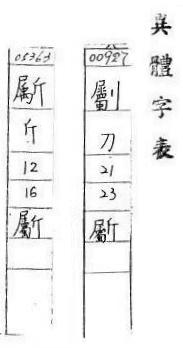 異體字表
00927
劚
刀
21
23
斸
05363
𣃁
斤
12
16
斸